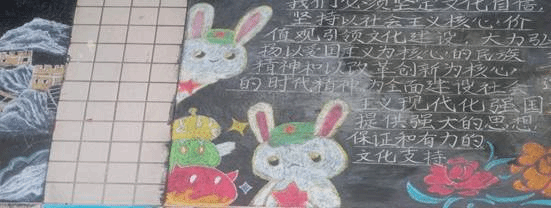 我们必须坚定文化自信,
坚持以社会主义核心价
值观引领文化建设,大力弘
扬以爱国主义为核心的民族
精神和以改革创新为核心
的时代精神,为全面建设社会
主义现代化强国
提供强大的思想
保证和有力的
文化支持